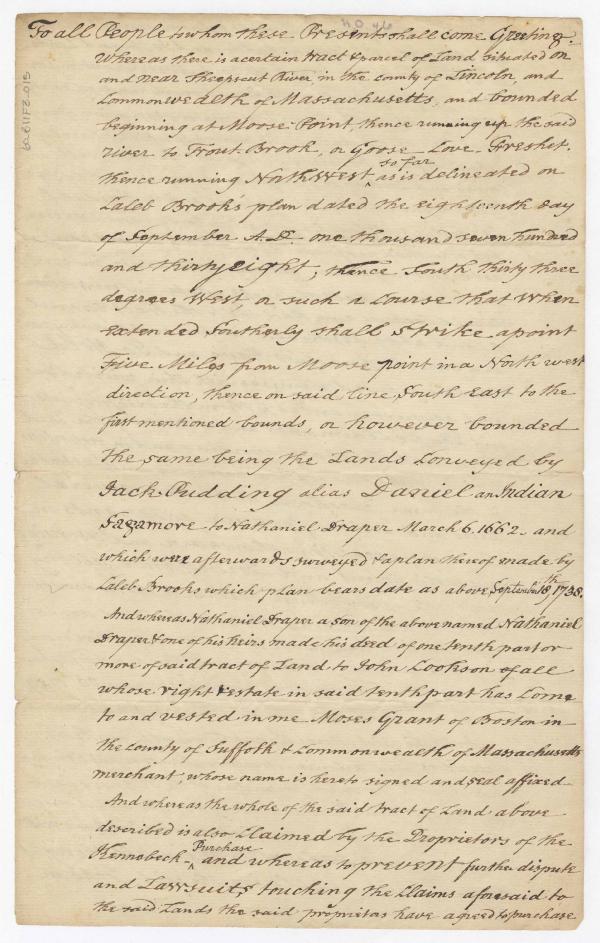 40 46
62.611F2.015
To all People to whom these Presents shall come Greeting.
Whereas there is a certain tract & parcel of Land situated on
and near Sheepscut River in the county of Lincoln, and
Commonwealth of Massachusetts, and bounded
beginning at Moose-Point, thence running up the said
river to Trout Brook, or Goose-Love-Freshet.
so far
thence running North West ^ as is delineated on
Caleb Brook's plan dated the eighteenth day
of September A.D. one thousand seven hundred
and thirty eight; thence South thirty three
degrees West, or such a Course that When
extended Southerly shall Strike a point
Five Miles from Moose point in a North west
direction, thence on said line South East to the
first mentioned bounds, or however bounded
the same being the Lands Conveyed by
Jack-Pudding alias Daniel an Indian
Sagamore to Nathaniel Draper March 6. 1662. and
which were afterwards surveyed & a plan thereof made by
Caleb Brooks which plan bears date as above September 18th 1738.
And whereas Nathaniel Draper a son of the above named Nathaniel
Draper & one of his heirs made his deed of one tenth part or
more of said tract of Land to John Cookson of all
whose right & estate in said tenth part has Come
to and vested in me Moses Grant of Boston in
the county of Suffolk & Commonwealth of Massachusetts
merchant, whose name is hereto signed and seal affixed
And whereas the whole of the said tract of Land above
described is also Claimed by the Proprietors of the
Purchase
Kennebeck- ^ and whereas to prevent further dispute
and Lawsuits touching the Claims aforesaid to
the said Lands the said proprietors have agreed to purchase